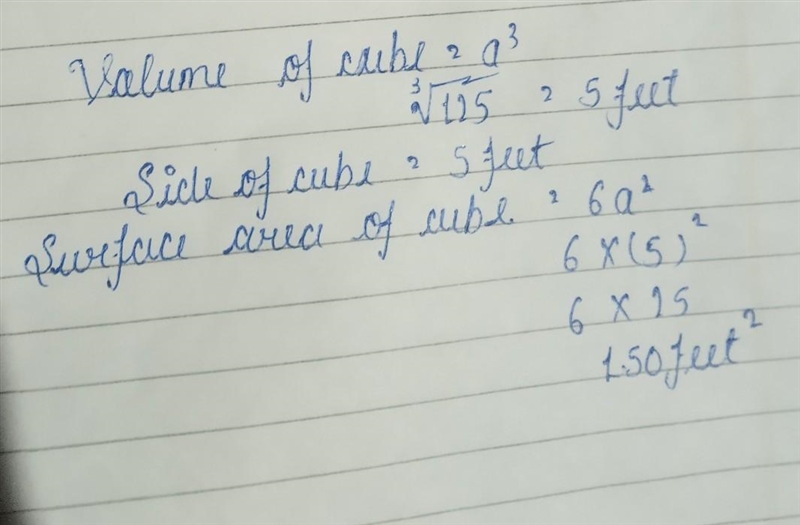 Volume of cube = a³
∛125 = 5 feet
Side of cube = 5 feet
Surface area of cube = 6a²
6 × (5)²
6 × 25
150 feet²